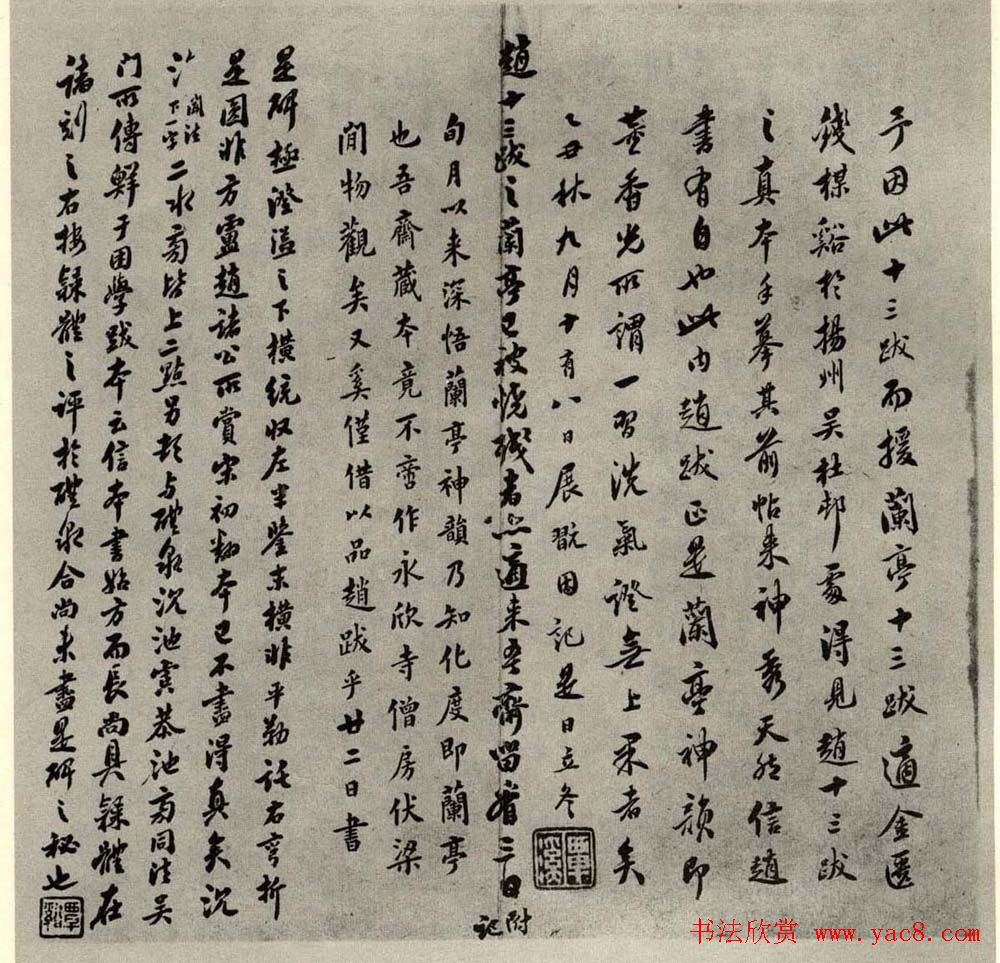 予因此十三跋而援蘭亭十三跋適金匱
錢楳谿於揚州吴杜邨處得見趙十三跋
之真本手摹其前帖来神秀天然信趙
書有自也此内趙跋正是蘭亭神韻即
董香光所謂一習洗氣證無上果者矣
乙丑秋九月十有八日展翫因記是日立冬
趙十三跋之蘭亭已被燒殘者亦適来吾齋留看三日
附記
旬月以来深悟蘭亭神韻乃知化度即蘭亭
也吾齋藏本竟不啻作永欣寺僧房伏梁
間物觀矣又奚僅借以品趙跋乎廿二日書
是碑極澄溢之下橫統収左半鑒末橫非平勒託右彎折
是圓非方盧趙諸公所賞宋初翻本已不盡得真矣沉
二水旁皆上二點另起与醴泉沉池虞恭池旁同法吴
門所傳鮮于困學跋本云信本書始方而長尚具隸體在
諸刻之右按隸體之評於醴泉合尚未盡是碑之秘也
覃谿
书法欣赏 www.yac8.com